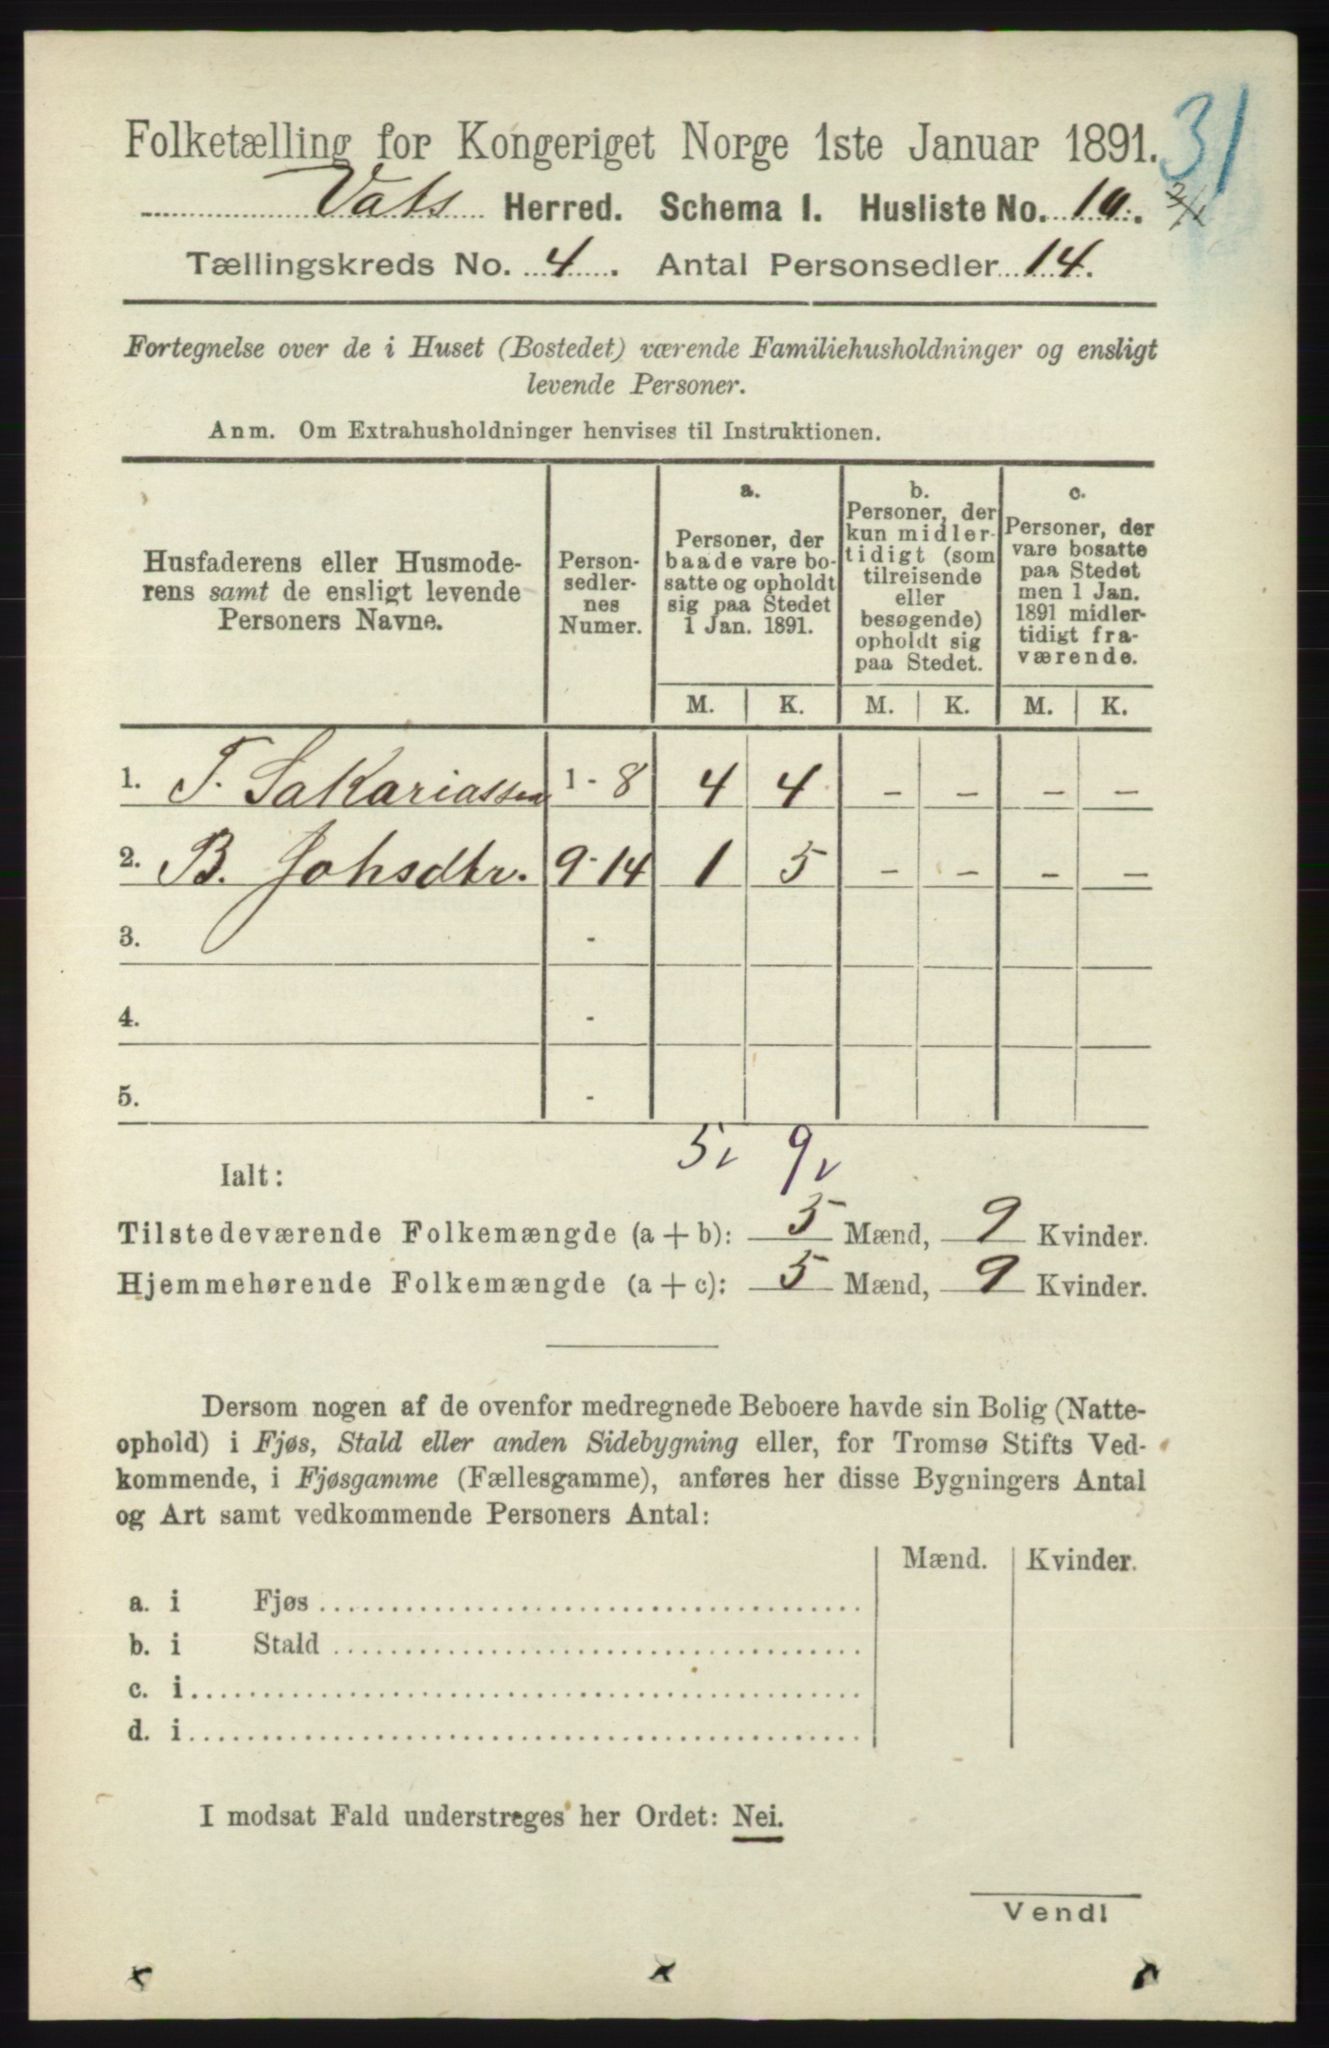 31
Folketælling for Kongeriget Norge 1ste Januar 1891.
Vats Herred. Schema I. Husliste No. 10.
Tællingskreds No. 4. Antal Personsedler 14.
Fortegnelse over de i Huset (Bostedet) værende Familiehusholdninger og ensligt
levende Personer.
Anm. Om Extrahusholdninger henvises til Instruktionen.
Husfaderens eller Husmode-
rens samt de ensligt levende
Personers Navne.
Person-
sedler-
nes
Numer.
a.
Personer, der
baade vare bo-
satte og opholdt
sig paa Stedet
1 Jan. 1891.
b.
Personer, der
kun midler-
tidigt (som
tilreisende
eller
besøgende)
opholdt sig
paa Stedet.
c.
Personer, der
vare bosatte
paa Stedet
men 1 Jan.
1891 midler-
tidigt fra-
værende.
M. K. M. K. M. K.
1. T. Sakariassen 1 - 8 4 4 - - - -
2. B. Johsdtr. 9-14 1 5 - - - -
3. -
4. -
5. -
5 9
Ialt:
Tilstedeværende Folkemængde (a + b): 5 Mænd, 9 Kvinder.
Hjemmehørende Folkemængde (a + c): 5 Mænd, 9 Kvinder.
Dersom nogen af de ovenfor medregnede Beboere havde sin Bolig (Natte-
ophold) i Fjøs, Stald eller anden Sidebygning eller, for Tromsø Stifts Ved-
kommende, i Fjøsgamme (Fællesgamme), anføres her disse Bygningers Antal
og Art samt vedkommende Personers Antal:
Mænd. Kvinder.
a. i Fjøs
b. i Stald
c. i
d. i
I modsat Fald understreges her Ordet: Nei.
Vend!